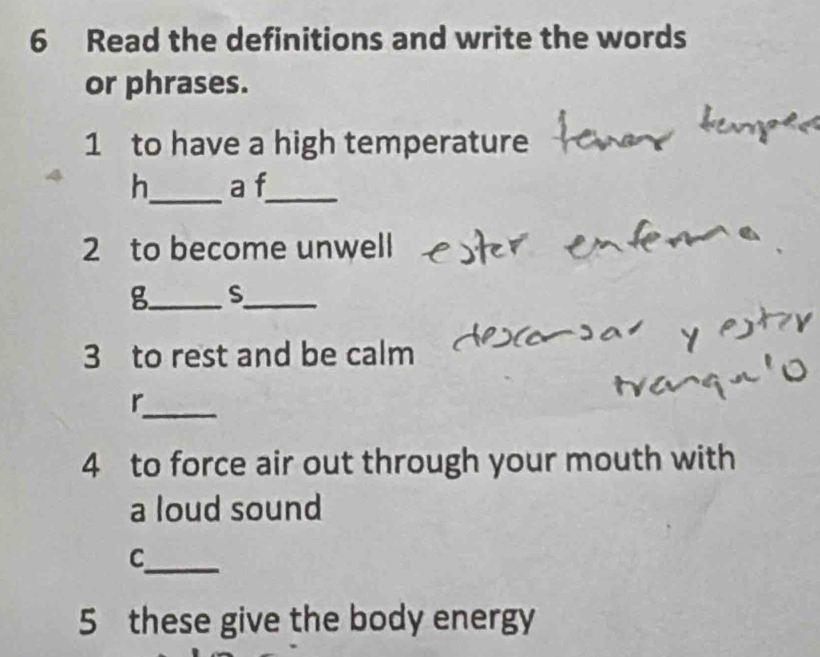 6 Read the definitions and write the words
or phrases.
1 to have a high temperature tener temper
h_____ a f_____
2 to become unwell ester enferma.
g_____ s_____
3 to rest and be calm descansar y ester
r_____
4 to force air out through your mouth with
a loud sound
c_____
5 these give the body energy